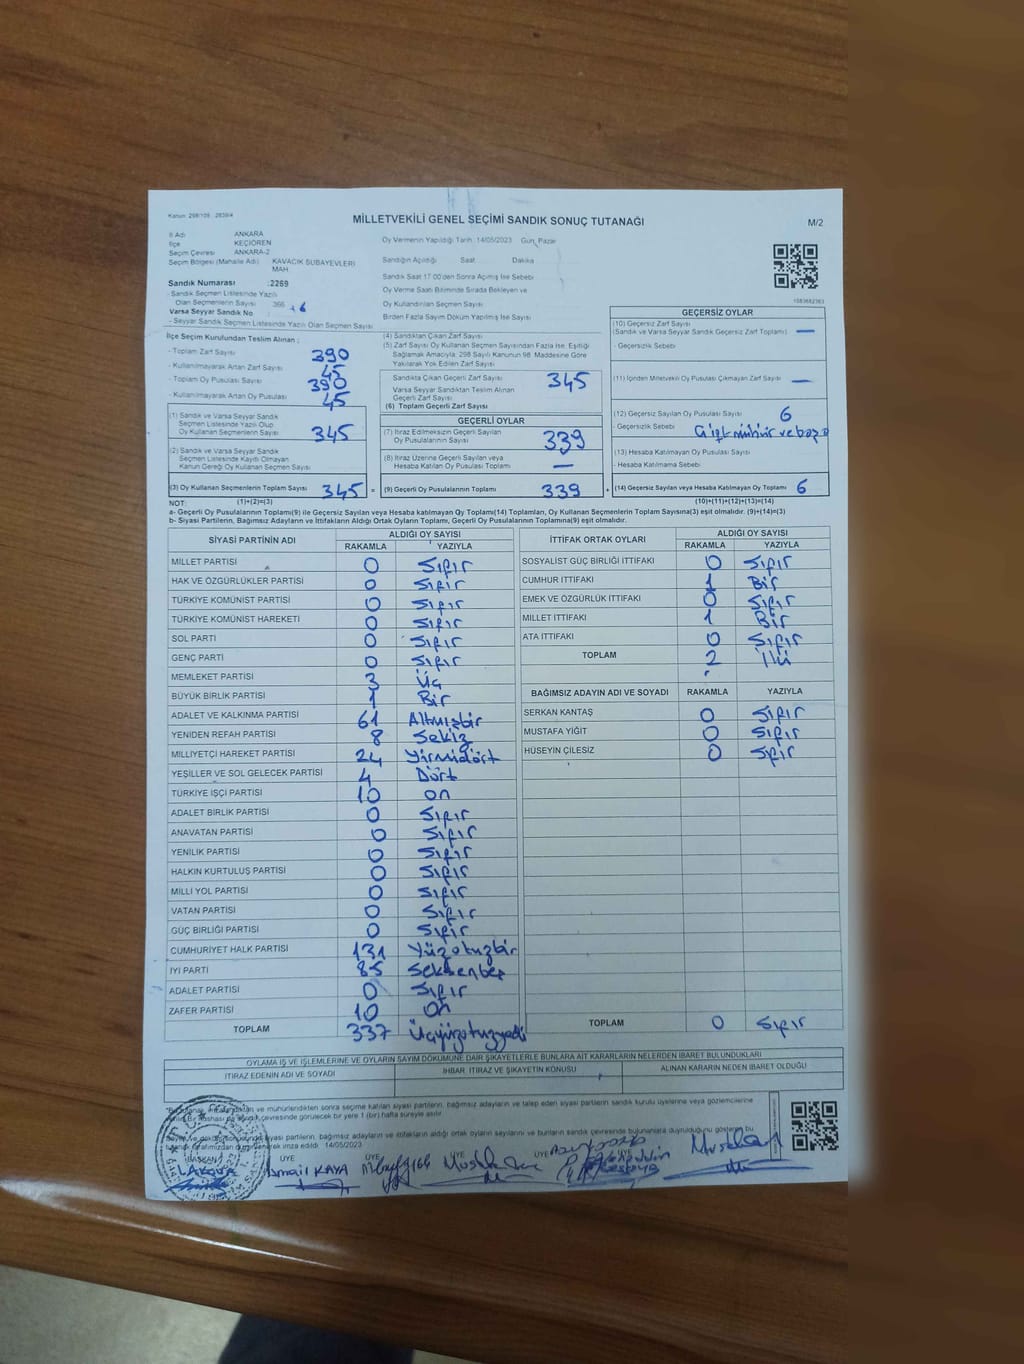 Kanun: 298/105 : 2839/4
MİLLETVEKİLİ GENEL SEÇİMİ SANDIK SONUÇ TUTANAĞI
M/2
İl Adı ANKARA
İlçe KEÇİÖREN
Seçim Çevresi ANKARA-2
Seçim Bölgesi (Mahalle Adı) KAVACIK SUBAYEVLERİ MAH
Sandık Numarası :2269
- Sandık Seçmen Listesinde Yazılı
Olan Seçmenlerin Sayısı 366 +6
Varsa Seyyar Sandık No
- Seyyar Sandık Seçmen Listesinde Yazılı Olan Seçmen Sayısı
Oy Vermenin Yapıldığı Tarih :14/05/2023 Gün: Pazar
Sandığın Açıldığı Saat Dakika
Sandık Saat 17.00'den Sonra Açılmış İse Sebebi
Oy Verme Saati Bitiminde Sırada Bekleyen ve
Oy Kullandırılan Seçmen Sayısı
Birden Fazla Sayım Döküm Yapılmış İse Sayısı
İlçe Seçim Kurulundan Teslim Alınan ;
- Toplam Zarf Sayısı 390
- Kullanılmayarak Artan Zarf Sayısı 45
- Toplam Oy Pusulası Sayısı 390
- Kullanılmayarak Artan Oy Pusulası 45
(1) Sandık ve Varsa Seyyar Sandık
Seçmen Listesinde Yazılı Olup
Oy Kullanan Seçmenlerin Sayısı 345
(2) Sandık ve Varsa Seyyar Sandık
Seçmen Listesinde Kayıtlı Olmayan
Kanun Gereği Oy Kullanan Seçmen Sayısı
(3) Oy Kullanan Seçmenlerin Toplam Sayısı 345 =
(1)+(2)=(3)
(4) Sandıktan Çıkan Zarf Sayısı
(5) Zarf Sayısı Oy Kullanan Seçmen Sayısından Fazla İse, Eşitliği
Sağlamak Amacıyla; 298 Sayılı Kanunun 98. Maddesine Göre
Yakılarak Yok Edilen Zarf Sayısı
Sandıkta Çıkan Geçerli Zarf Sayısı 345
Varsa Seyyar Sandıktan Teslim Alınan
Geçerli Zarf Sayısı
(6) Toplam Geçerli Zarf Sayısı
GEÇERLİ OYLAR
(7) İtiraz Edilmeksizin Geçerli Sayılan
Oy Pusulalarının Sayısı 339
(8) İtiraz Üzerine Geçerli Sayılan veya
Hesaba Katılan Oy Pusulası Toplamı —
(9) Geçerli Oy Pusulalarının Toplamı 339 +
GEÇERSİZ OYLAR
(10) Geçersiz Zarf Sayısı
(Sandık ve Varsa Seyyar Sandık Geçersiz Zarf Toplamı) —
- Geçersizlik Sebebi
(11) İçinden Milletvekili Oy Pusulası Çıkmayan Zarf Sayısı —
(12) Geçersiz Sayılan Oy Pusulası Sayısı 6
- Geçersizlik Sebebi
(13) Hesaba Katılmayan Oy Pusulası Sayısı
- Hesaba Katılmama Sebebi
(14) Geçersiz Sayılan veya Hesaba Katılmayan Oy Toplamı 6
(10)+(11)+(12)+(13)=(14)
NOT:
a- Geçerli Oy Pusulalarının Toplamı(9) ile Geçersiz Sayılan veya Hesaba Katılmayan Oy Pusulası Toplamı(14) Toplamları, Oy Kullanan Seçmenlerin Toplam Sayısına(3) eşit olmalıdır. (9)+(14)=(3)
b- Siyasi Partilerin, Bağımsız Adayların ve İttifakların Aldığı Ortak Oyların Toplamı, Geçerli Oy Pusulalarının Toplamına(9) eşit olmalıdır.
SİYASİ PARTİNİN ADI ALDIĞI OY SAYISI
RAKAMLA YAZIYLA
MİLLET PARTİSİ 0 Sıfır
HAK VE ÖZGÜRLÜKLER PARTİSİ 0 Sıfır
TÜRKİYE KOMÜNİST PARTİSİ 0 Sıfır
TÜRKİYE KOMÜNİST HAREKETİ 0 Sıfır
SOL PARTİ 0 Sıfır
GENÇ PARTİ 0 Sıfır
MEMLEKET PARTİSİ 3 Üç
BÜYÜK BİRLİK PARTİSİ 1 Bir
ADALET VE KALKINMA PARTİSİ 61 Altmışbir
YENİDEN REFAH PARTİSİ 8 Sekiz
MİLLİYETÇİ HAREKET PARTİSİ 24 Yirmidört
YEŞİLLER VE SOL GELECEK PARTİSİ 4 Dört
TÜRKİYE İŞÇİ PARTİSİ 10 on
ADALET BİRLİK PARTİSİ 0 Sıfır
ANAVATAN PARTİSİ 0 Sıfır
YENİLİK PARTİSİ 0 Sıfır
HALKIN KURTULUŞ PARTİSİ 0 Sıfır
MİLLİ YOL PARTİSİ 0 Sıfır
VATAN PARTİSİ 0 Sıfır
GÜÇ BİRLİĞİ PARTİSİ 0 Sıfır
CUMHURİYET HALK PARTİSİ 131 Yüzotuzbir
İYİ PARTİ 85 Seksenbeş
ADALET PARTİSİ 0 Sıfır
ZAFER PARTİSİ 10 On
TOPLAM 337 Üçyüzotuzyedi
İTTİFAK ORTAK OYLARI ALDIĞI OY SAYISI
RAKAMLA YAZIYLA
SOSYALİST GÜÇ BİRLİĞİ İTTİFAKI 0 Sıfır
CUMHUR İTTİFAKI 1 Bir
EMEK VE ÖZGÜRLÜK İTTİFAKI 0 Sıfır
MİLLET İTTİFAKI 1 Bir
ATA İTTİFAKI 0 Sıfır
TOPLAM 2 İki
BAĞIMSIZ ADAYIN ADI VE SOYADI RAKAMLA YAZIYLA
SERKAN KANTAŞ 0 Sıfır
MUSTAFA YİĞİT 0 Sıfır
HÜSEYİN ÇİLESİZ 0 Sıfır
TOPLAM 0 Sıfır
OYLAMA İŞ VE İŞLEMLERİNE VE OYLARIN SAYIM DÖKÜMÜNE DAİR ŞİKAYETLERLE BUNLARA AİT KARARLARIN NELERDEN İBARET BULUNDUKLARI
İTİRAZ EDENİN ADI VE SOYADI İHBAR, İTİRAZ VE ŞİKAYETİN KONUSU ALINAN KARARIN NEDEN İBARET OLDUĞU
ve mühürlendikten sonra seçime katılan siyasi partilerin, bağımsız adayların ve talep eden siyasi partilerin sandık kurulu üyelerine veya gözlemcilerine
çevresinde görülecek bir yere 1 (bir) hafta süreyle asılır.
siyasi partilerin, bağımsız adayların ve ittifakların aldığı ortak oyların sayılarını ve bunların sandık çevresinde bulunanlara duyurulduğunu gösteren bu
imza edildi. 14/05/2023
BAŞKAN ÜYE ÜYE ÜYE ÜYE ÜYE
İsmail KAYA